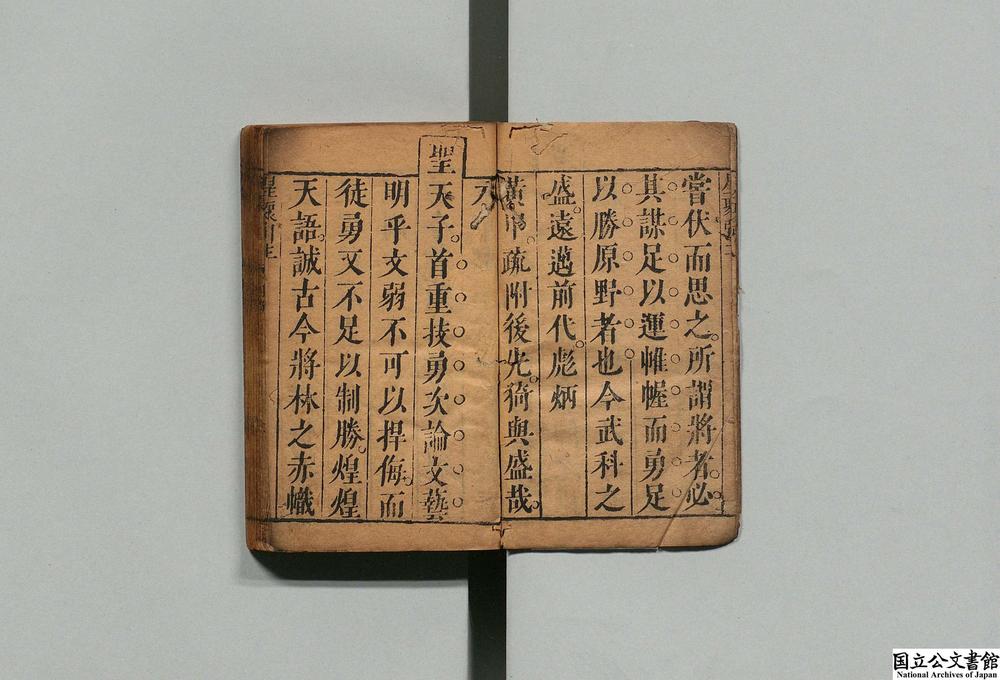 當伏而思之。所謂將者。必
其謀足以運帷幄而勇足
以勝原野者也今武科之
盛。遠邁前代。彪炳
黃 疏附後先。猗與盛哉。
聖
天子。首重技勇次論文藝
明乎文弱不可以捍侮。而
徒勇又不足以制勝。煌煌
天語。誠古今將林之赤幟
国立公文書館
National Archives of Japan